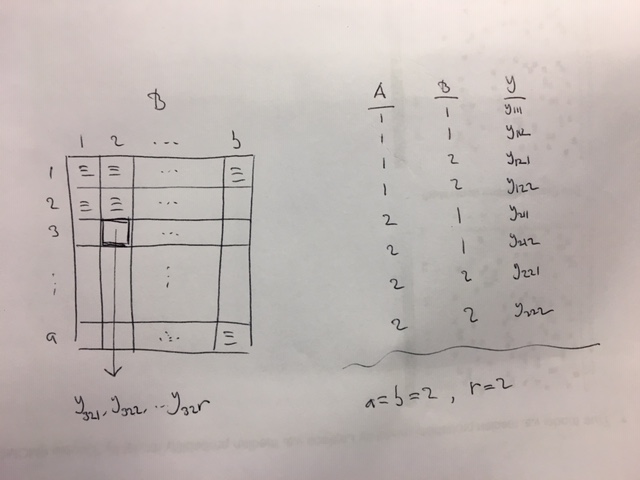 B
1 2 ... b
1 ≡ ≡ ... ≡
2 ≡ ≡ ...
3 ...
⋮ ⋮
a ... ≡
y321, y322, ... y32r
A B y
1 1 y111
1 1 y112
1 2 y121
1 2 y122
2 1 y211
2 1 y212
2 2 y221
2 2 y222
a=b=2, r=2